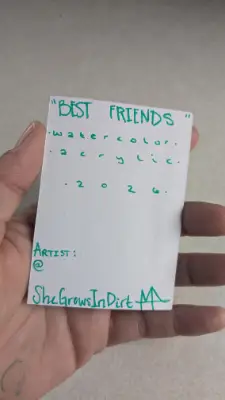 "BEST FRIENDS"
·watercolor·
·acrylic·
·2026·
ARTIST:
@
SheGrowsInDirt